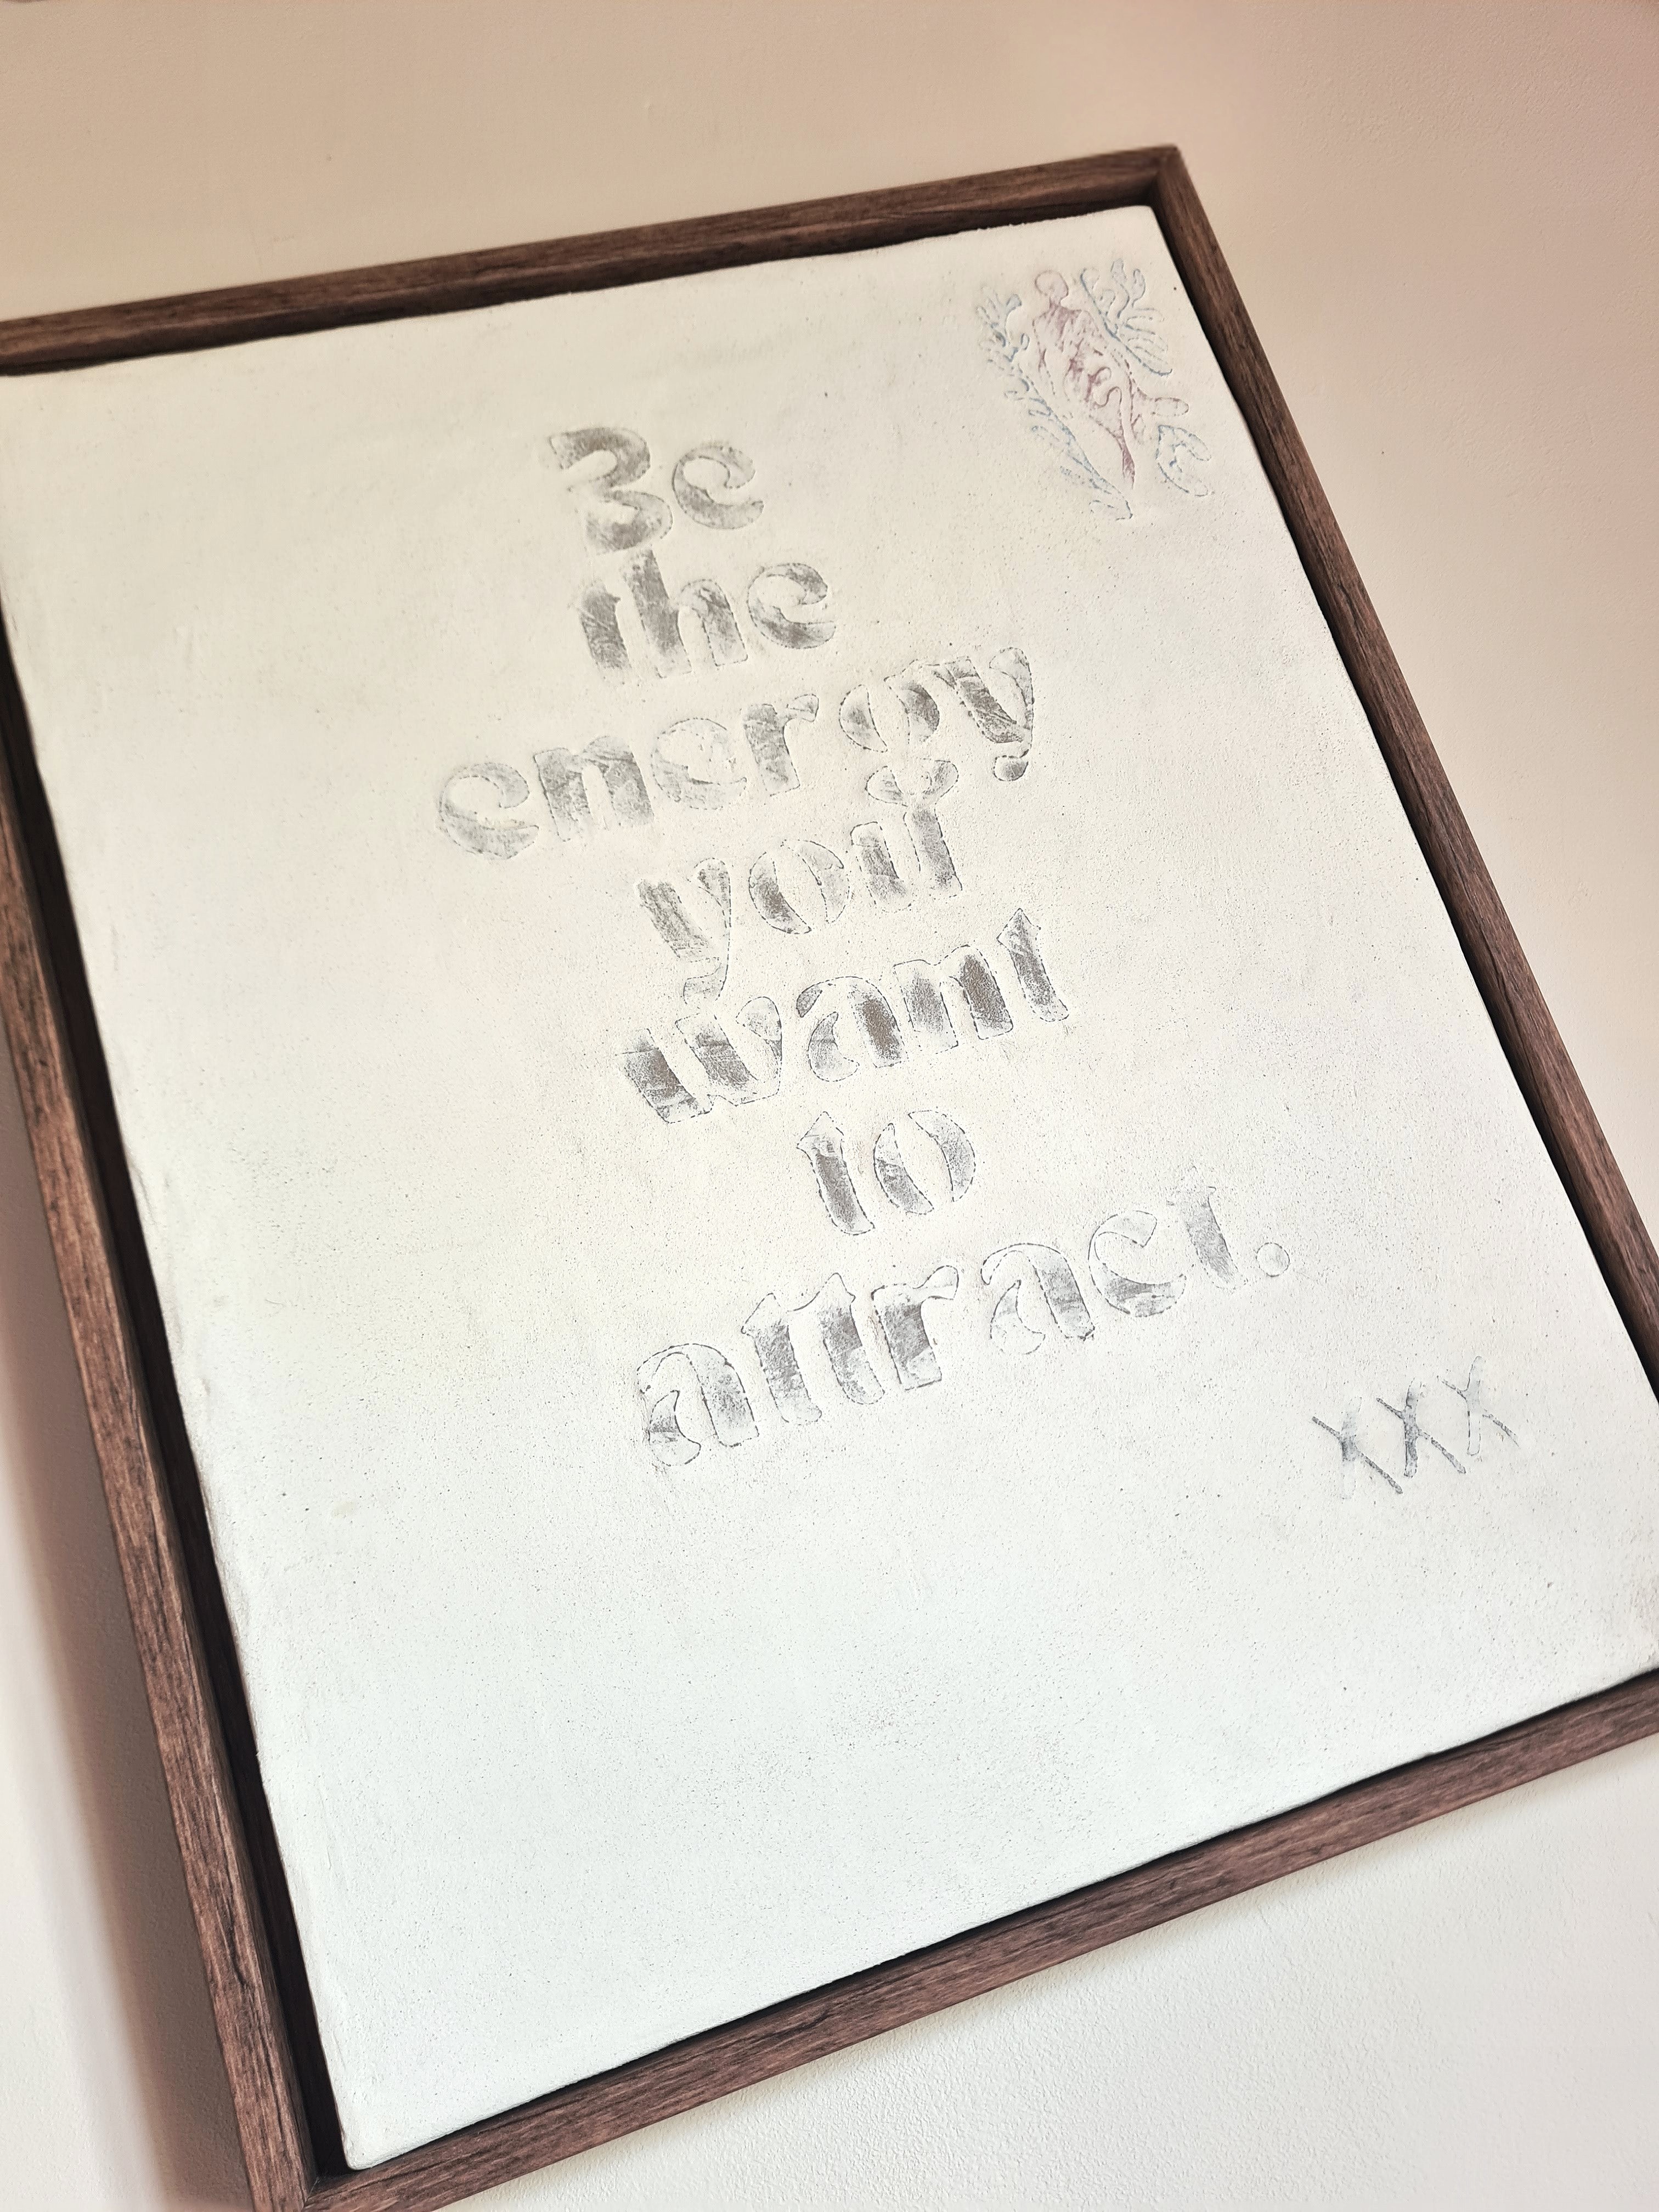 Be
the
energy
you
want
to
attract.
XXX